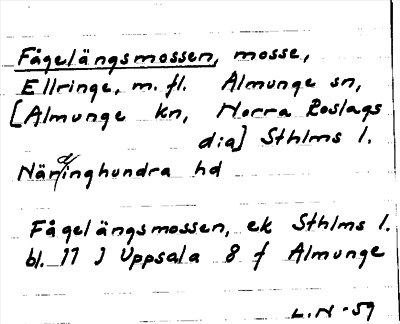 Fågelängsmossen, mosse,
Ellringe, m. fl. Almunge sn,
[Almunge kn, Norra Roslags
d:a] Sthlms l.
Närdinghundra hd
Fågelängsmossen, ek Sthlms l.
bl. 77 J Uppsala 8 f Almunge
L.N-59